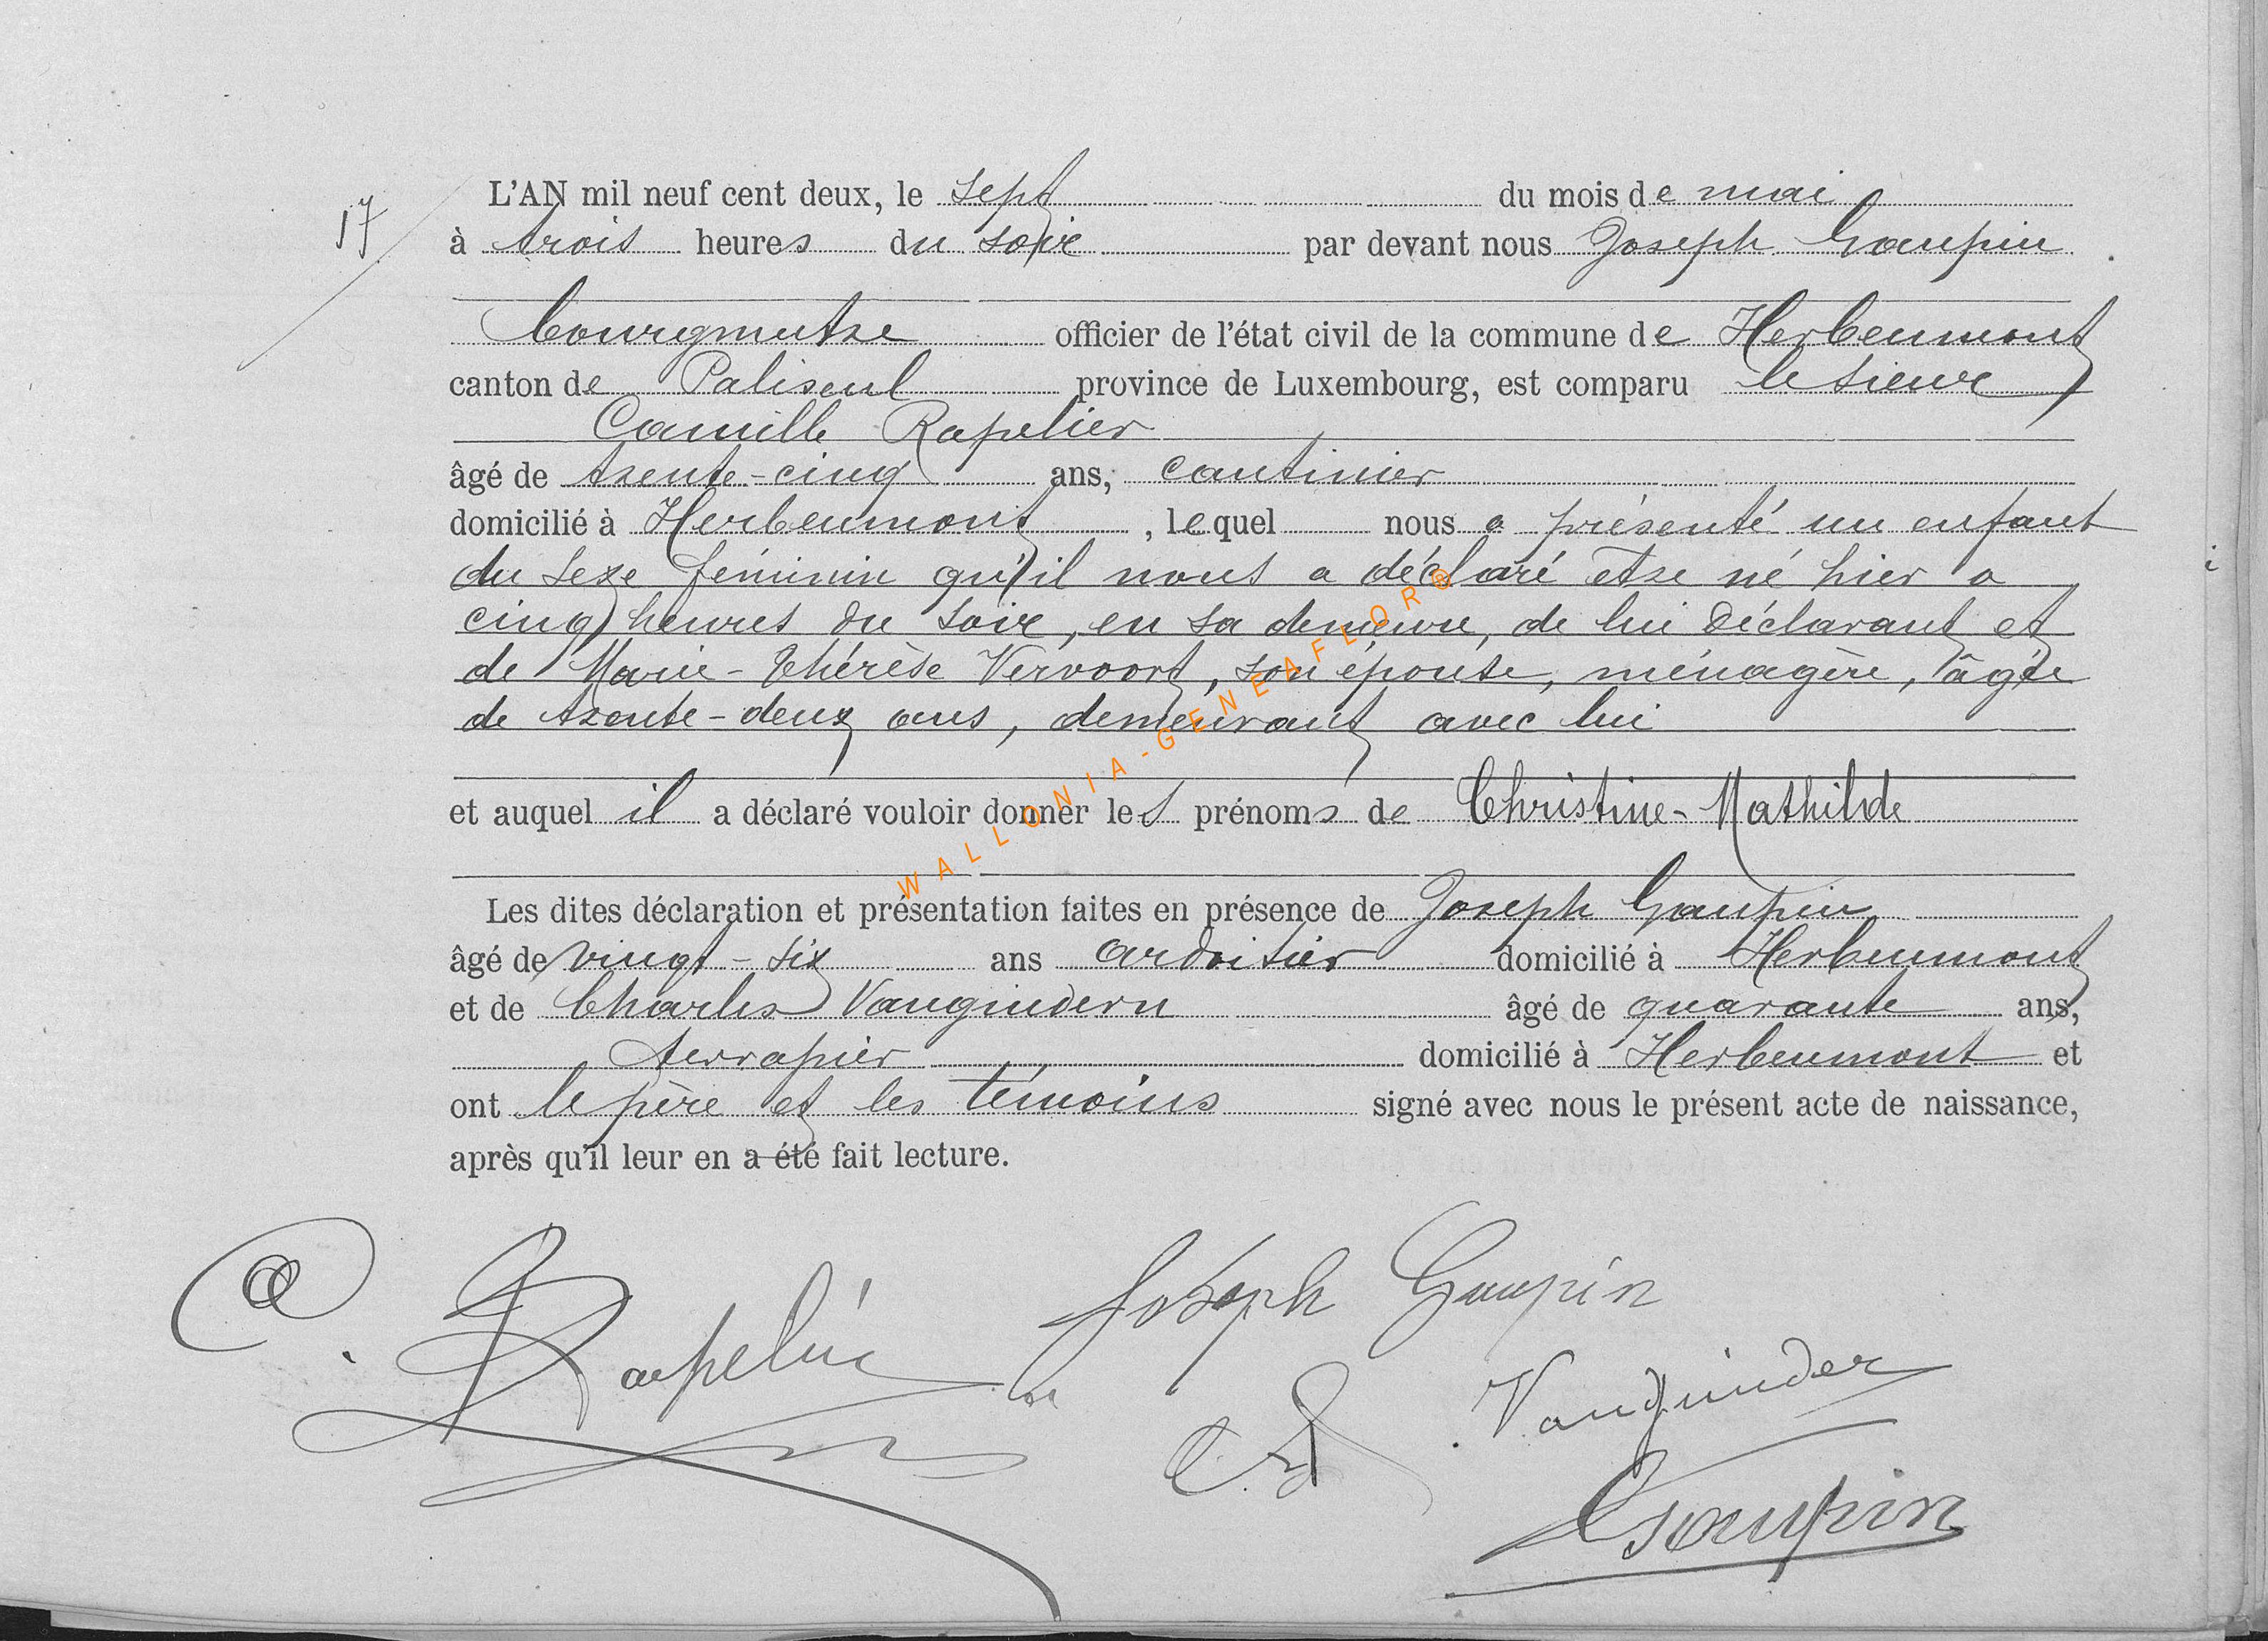 17
L'AN mil neuf cent deux, le sept du mois de mai
à trois heures du soir par devant nous Joseph Gaupin
bourgmestre officier de l'état civil de la commune de Herbeumont
canton de Paliseul province de Luxembourg, est comparu le sieur
Camille Rapelier
âgé de trente-cinq ans, cantinier
domicilié à Herbeumont, lequel nous a présenté un enfant
du sexe féminin qu'il nous a déclaré être né hier a
cinq heures du soir, en sa demeure, de lui déclarant et
de Marie-Thérèse Vervoort, son épouse, ménagère, âgée
de trente-deux ans, demeurant avec lui
et auquel il a déclaré vouloir donner les prénoms de Christine-Mathilde
Les dites déclaration et présentation faites en présence de Joseph Gaupin
âgé de vingt-six ans ardoisier domicilié à Herbeumont
et de Charles Vangindern âgé de quarante ans,
domicilié à Herbeumont et
ont le père et les témoins signé avec nous le présent acte de naissance,
après qu'il leur en a été fait lecture.
Rapelier Joseph Gaupin
Vanguinder
Gaupin
WALLONIA-GENEAFLOR®